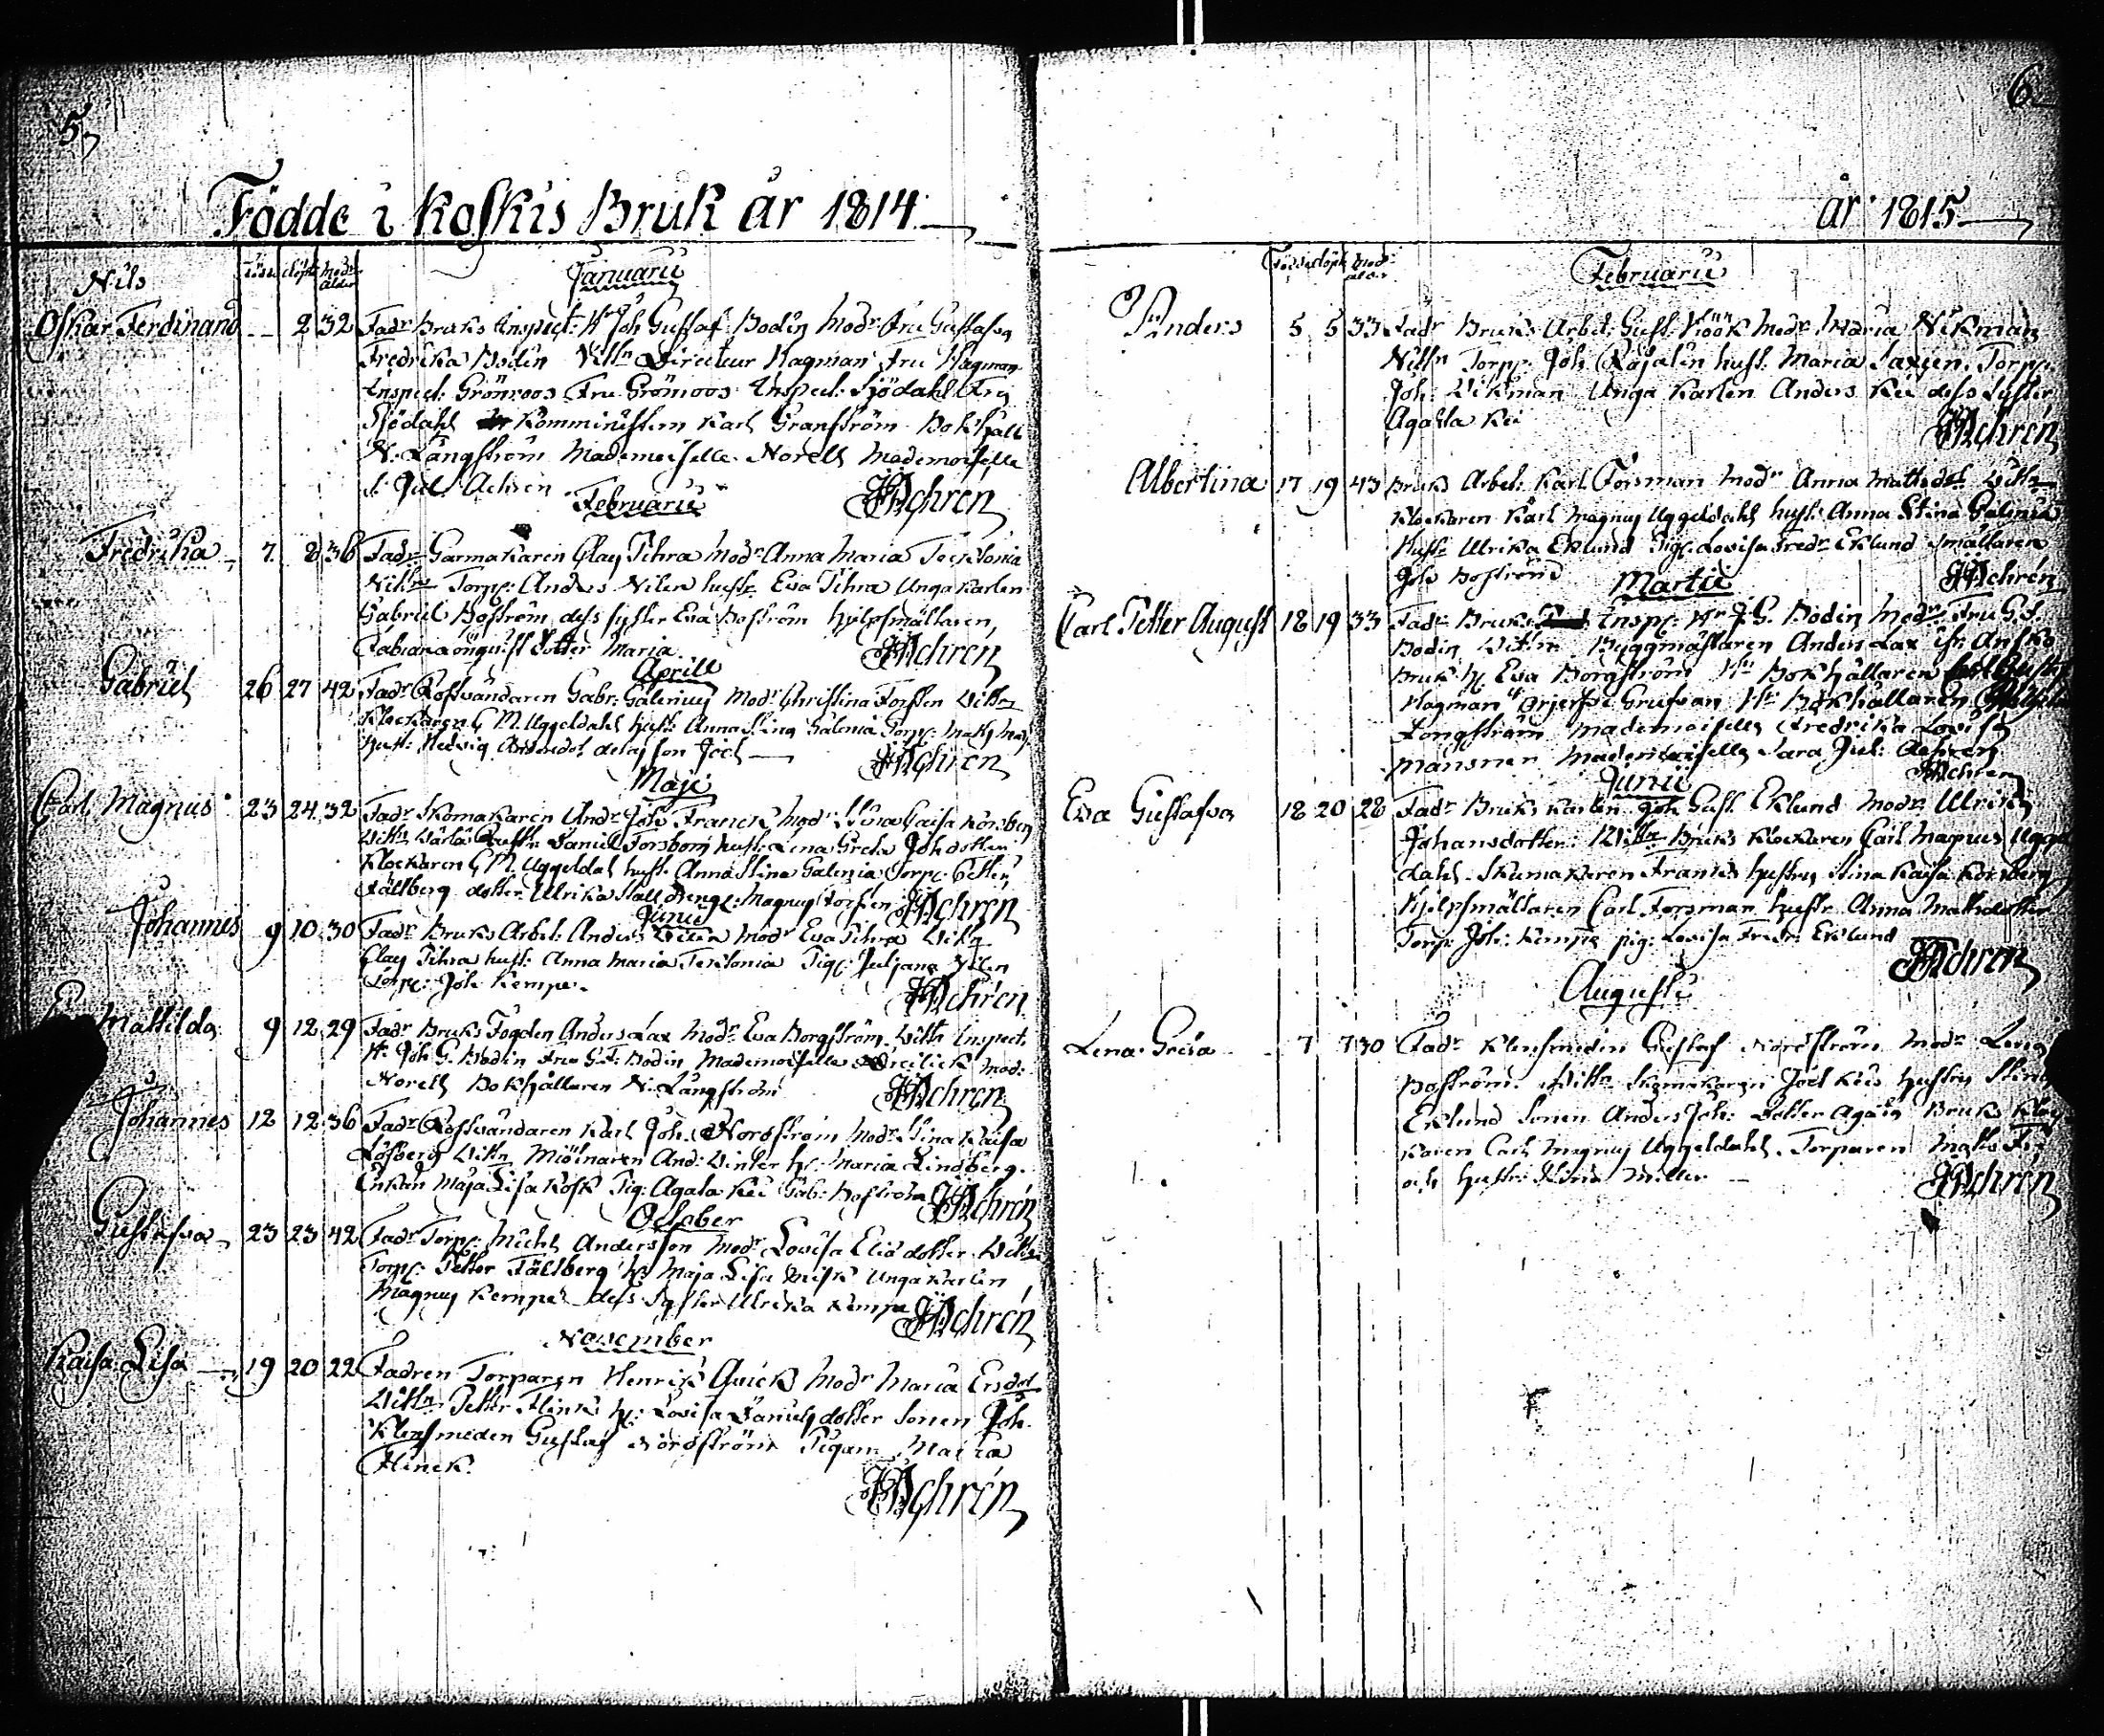 5,
Födde i Koskis Bruk år 1814
Född döpt Modr ålder
Januarii
Nils
Oskar Ferdinand 2 32 Fadr Bruks Inspect: Hr Joh Gustaf Bodin Modr Fru Gustafva
Fredrika Bodin Vittn Directeur Hagman Fru Hagman
Inspect: Grönroos Fru Grönroos Inspect: Sjödahl Fru
Sjödahl Komministern Karl Granström Bokhåll
N. Långström Mademoiselle Norell Mademoiselle
S. Jul. Achren JHAchren
Februarii
Fredrika 7 8 36 Fadr Garmakaren Clas Tihra Modr Anna Maria
Vittn Torp: Anders hustr Eva Tihra Unga Karlen
Gabriel Boström dess syster Eva Boström Hjelpsmältaren
dotter Maria JHAchren
Aprill
Gabriel 26 27 42 Fadr Rostvändaren Gabr: Galenius Modr Christina Forsten Vittn
Klockaren C M. Uggeldahl hust: Anna Stina Galenia Torp: Mats
Hust: Hedvig Andersdot deras son Joel JHAchren
Maji
Carl Magnus 23 24 32 Fadr Skomakaren And: Joh Franck Modr Stina Caisa
Vittn Daniel Forsbom hust: Lena Greta Johdotter
Klockaren C M. Uggeldal hust: Anna Stina Galenia Torp: Petter
Fältberg dotter Ulrika Stall Dreng: Magnus Forsten JHAchren
Junii
Johannes 9 10 30 Fadr Bruks Arbet: Anders Modr Eva Tihra Vittn
Clas Tihra hust: Anna Maria Pig: Juljana
Torp: Joh Kempe JHAchren
Mathilda 9 12 29 Fadr Bruks Fogden Anders Lax Modr Eva Borgström Vittn Inspect:
Hr Joh G. Bodin Fru G:F: Bodin Mademoiselle Mad:
Norell Bokhållaren N. Långström JHAchren
Johannes 12 12 36 Fadr Rostvändaren Karl Joh: Nordström Modr Stina Kaisa
Löfberg Vittn Mjölnaren And: Vinter h: Maria Lindberg
Enkan Maja Lisa Kosk Pig: Agata Kei Gab: Boström JHAchren
October
Gustafva 23 23 42 Fadr Torp: Michl Andersson Modr Lovisa Elia dotter Vittn
Torp: Petter Fältberg h: Maja Lisa Unga Karlen
Magnus Kempe dess Syster Ulrika Kempe JHAchren
November
Kaisa Lisa 19 20 22 Fadren Torparen Henrik Quick Modr Maria Ersdot
Vittn Petter Flink h: Lovisa Danielsdotter Sonen Joh.
Klensmeden Gustaf Nordström Pigan Maria
Flinck JHAchren
6
år 1815
Född döpt Modr ålder
Februarii
Anders 5 5 33 Fadr Bruks Arbet: Gust: Höök Modr Maria Vikman
Vittn Torp: Joh Rosalin hust: Maria Torp:
Joh: Vikman Unga Karlen Anders Kei dess Syster
Agatta Kei JHAchren
Albertina 17 19 43 Bruks Arbet: Karl Forsman Modr Anna Mattsdot Vittn
Klockaren Karl Magnus Uggeldahl hust: Anna Stina Galenia
Hust: Ulrika Eklund Pig: Lovisa Fredr Eklund Smältaren
Joh Boström JHAchren
Martii
Carl Petter August 18 19 33 Fadr Bruks Insp: Hr J. G. Bodin Modr Fru G.F.
Bodin Vittn Byggmästaren Anders Lax
Bruk h: Eva Borgström Hr Bokhållaren
Hagman Hr Bokhållaren
Longström Mademoiselle Fredrika Lovisa
Månsner Mademoiselle Sara Jul: Achren
JHAchren
Junii
Eva Gustafva 18 20 28 Fadr Bruks Karlen Joh Gust Eklund Modr Ulrika
Johansdotter. Vittn Bruks Klockaren Carl Magnus Uggel
dahl. Skumakaren Francks hustru Stina Kaisa
Hjelpsmältaren Carl Forsman hustr Anna Mattsdotter
Torp: Joh: Kempe pig: Lovisa Fredr: Eklund
JHAchren
Augusti
Lena Greta 7 7 30 Fadr Klensmeden Gustaf Nordström Modr Lena
Boström. Vittn Skomakaren Joel Kei hustru Stina
Eklund Sonen Anders Joh: Dotter Agata Bruks Kloc
karen Carl Magnus Uggeldahl. Torparen Matts
och hustr: Stina Miller
JHAchren